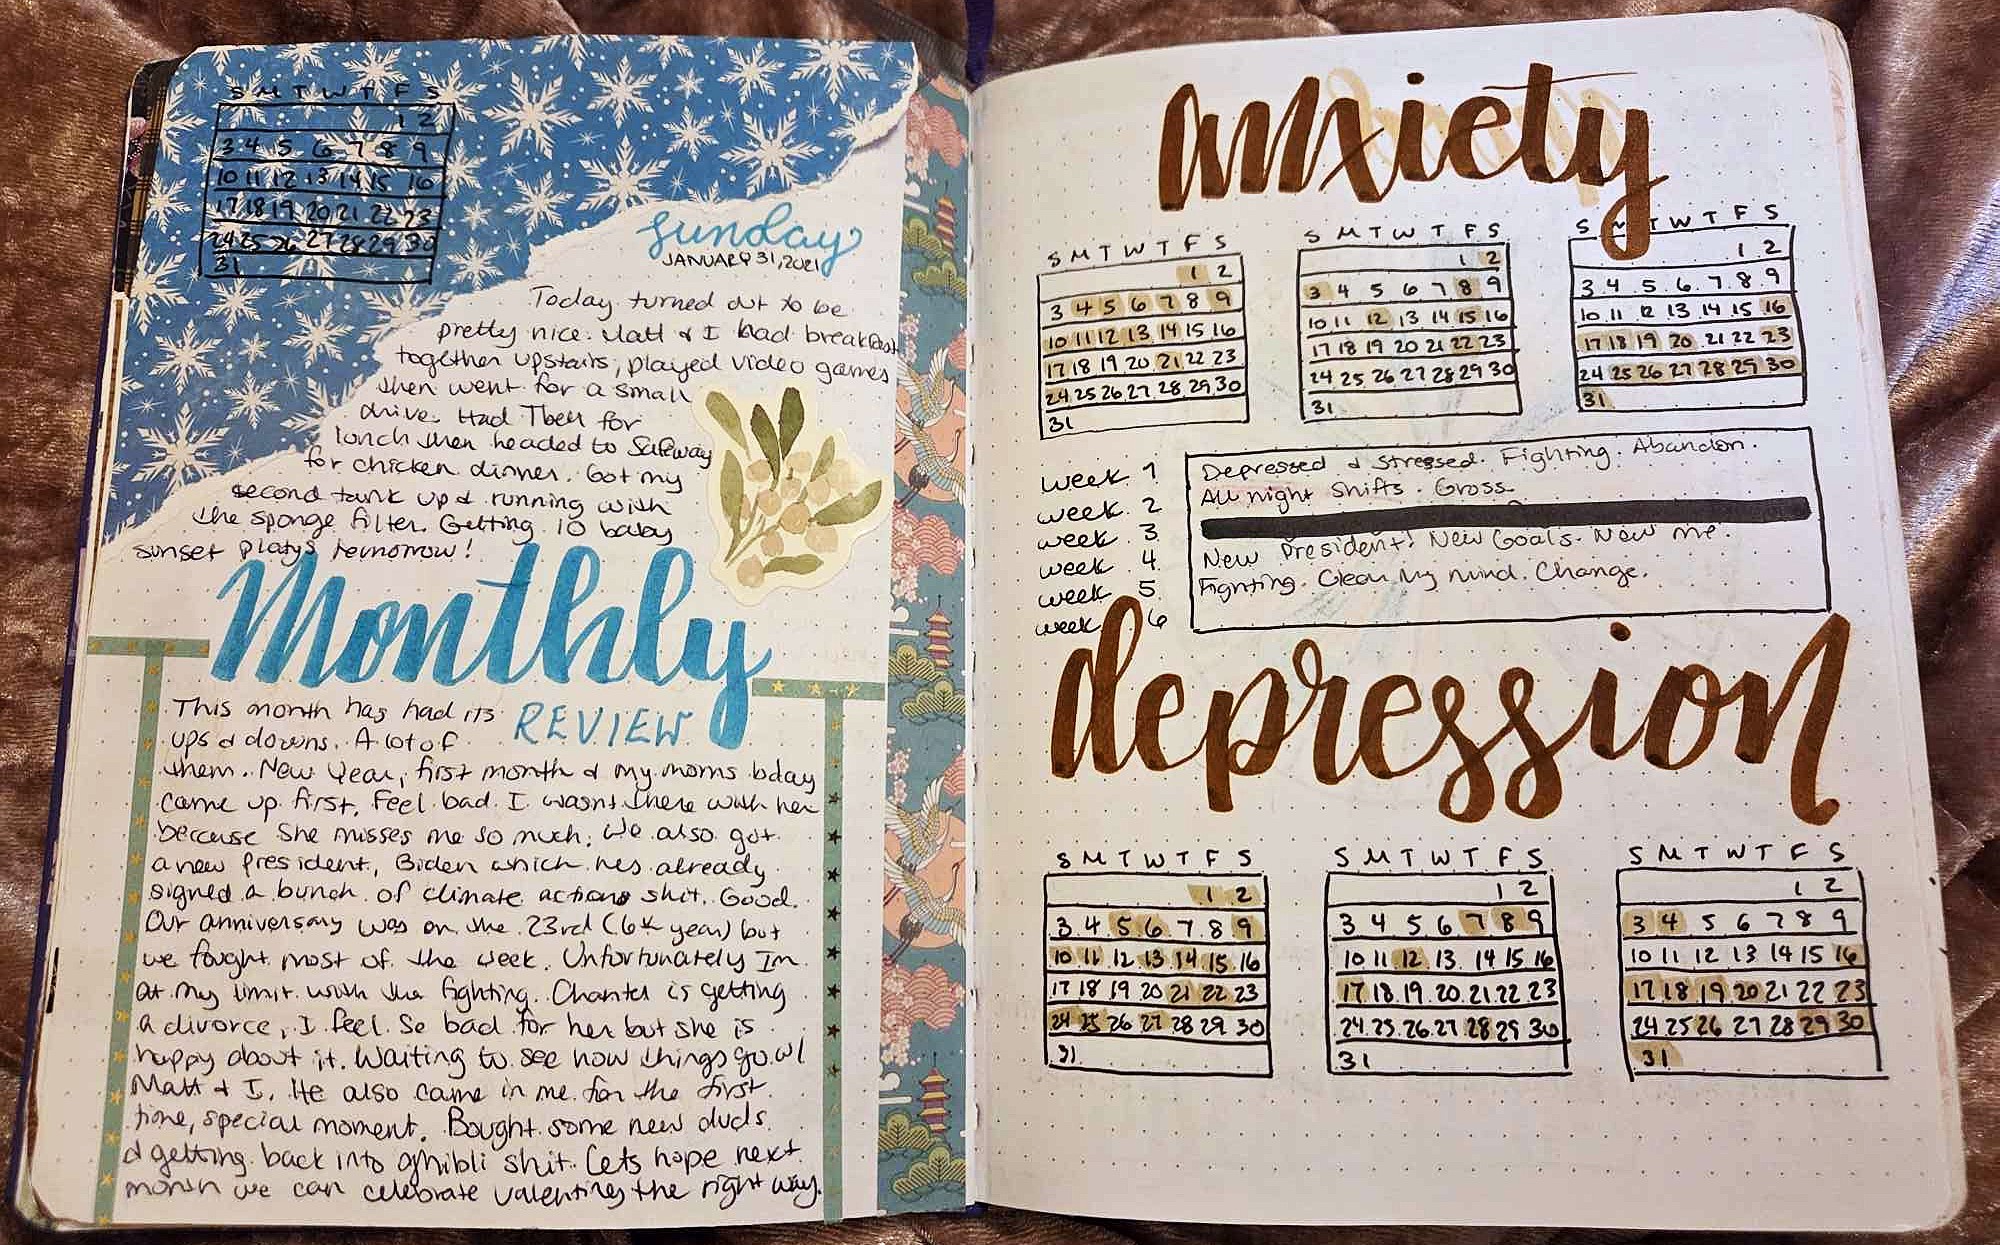 S M T W T F S
1 2
3 4 5 6 7 8 9
10 11 12 13 14 15 16
17 18 19 20 21 22 23
24 25 26 27 28 29 30
31
sunday
JANUARY 31, 2021
Today turned out to be
pretty nice. Matt & I had breakfast
together upstairs, played video games
then went for a small
drive. Had for
lunch then headed to Safeway
for chicken dinner. Got my
second tank up & running with
the sponge filter. Getting 10 baby
sunset platys tomorrow!
Monthly
REVIEW
This month has had its
ups & downs. A lot of
them. New Year, first month & my moms bday
came up first. Feel bad I wasnt there with her
because she misses me so much. We also got
a new president, Biden which has already
signed a bunch of climate actions shit. Good.
Our anniversary was on the 23rd (6th year) but
we fought most of the week. Unfortunately Im
at my limit with the fighting. Chantel is getting
a divorce, I feel so bad for her but she is
happy about it. Waiting to see how things go w/
Matt & I. He also came in me for the first
time, special moment. Bought some new duds
& getting back into ghibli shit. Lets hope next
month we can celebrate valentines the right way.
anxiety
S M T W T F S
1 2
3 4 5 6 7 8 9
10 11 12 13 14 15 16
17 18 19 20 21 22 23
24 25 26 27 28 29 30
31
S M T W T F S
1 2
3 4 5 6 7 8 9
10 11 12 13 14 15 16
17 18 19 20 21 22 23
24 25 26 27 28 29 30
31
S M T W T F S
1 2
3 4 5 6 7 8 9
10 11 12 13 14 15 16
17 18 19 20 21 22 23
24 25 26 27 28 29 30
31
week 1 Depressed & Stressed. Fighting. Abandon.
week 2 All night shifts. Gross.
week 3
week 4 New President! New Goals. New me.
week 5 Fighting. Clear my mind. Change.
week 6
depression
S M T W T F S
1 2
3 4 5 6 7 8 9
10 11 12 13 14 15 16
17 18 19 20 21 22 23
24 25 26 27 28 29 30
31
S M T W T F S
1 2
3 4 5 6 7 8 9
10 11 12 13 14 15 16
17 18 19 20 21 22 23
24 25 26 27 28 29 30
31
S M T W T F S
1 2
3 4 5 6 7 8 9
10 11 12 13 14 15 16
17 18 19 20 21 22 23
24 25 26 27 28 29 30
31